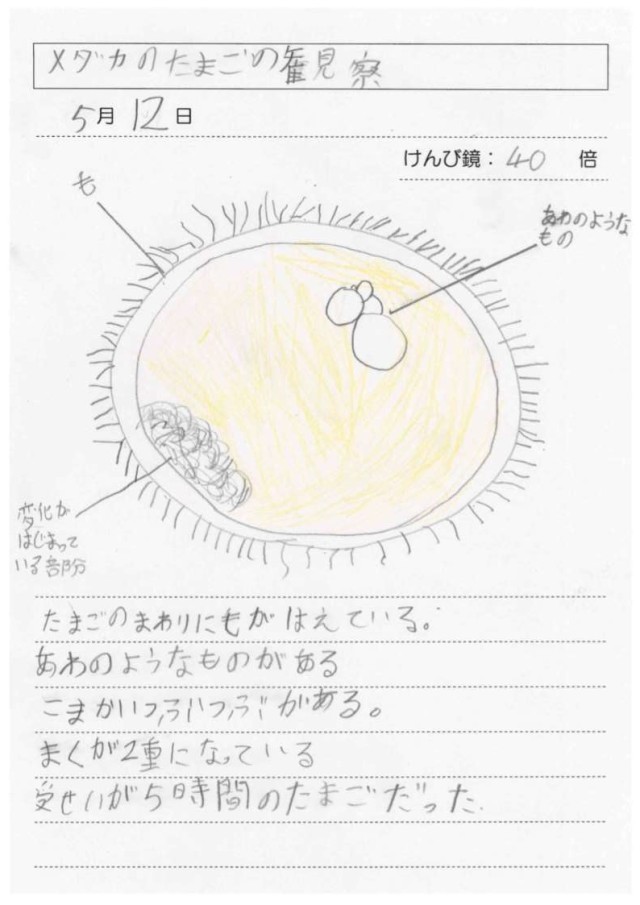 メダカのたまごの観察
5月12日
けんび鏡：40 倍
も
あわのような
もの
変化が
はじまって
いる部分
たまごのまわりにもがはえている。
あわのようなものがある
こまかいつぶつぶがある。
まくが2重になっている
受せいが5時間のたまごだった.